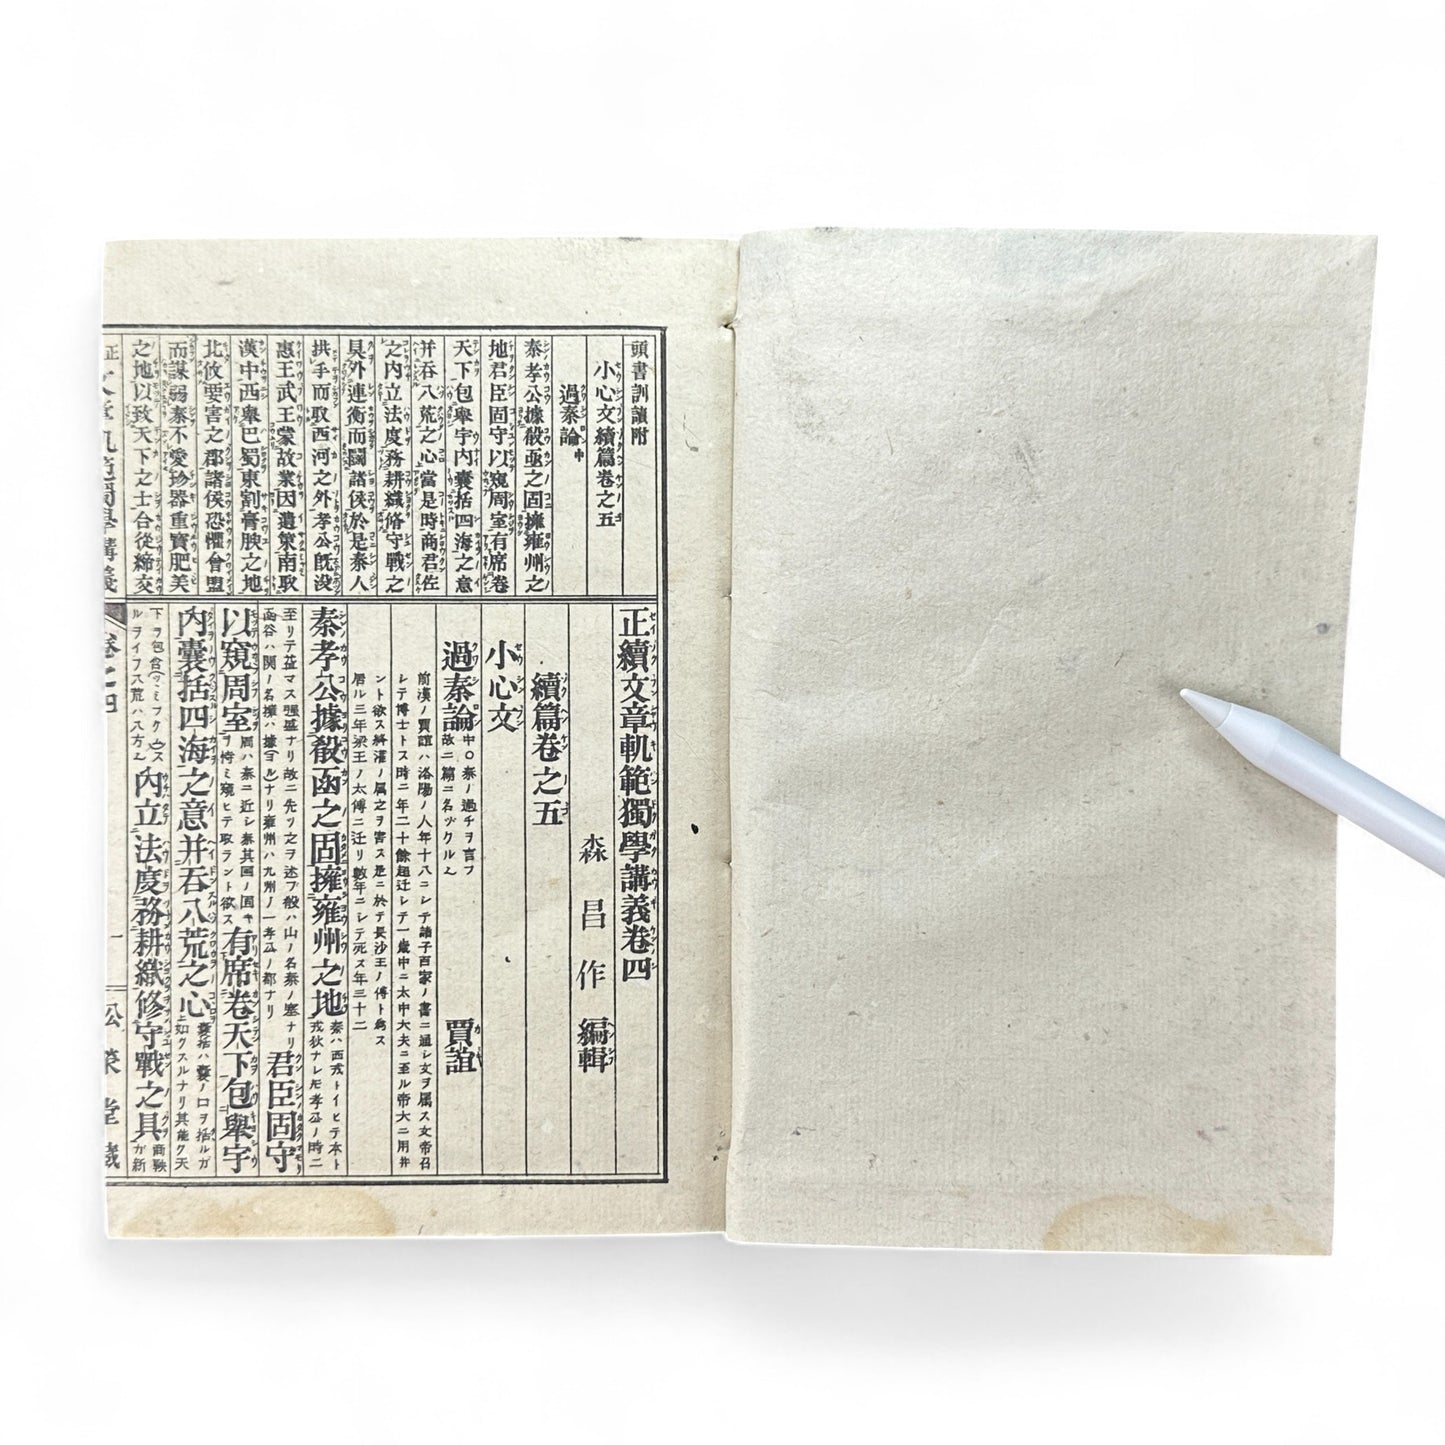 頭書訓讀附
小心文續篇卷之五
過秦論中
秦孝公據殽函之固擁雍州之
地君臣固守以窺周室有席卷
天下包擧宇內囊括四海之意
并吞八荒之心當是時商君佐
之內立法度務耕織脩守戰之
具外連衡而鬪諸侯於是秦人
拱手而取西河之外孝公旣沒
惠王武王蒙故業因遺策南取
漢中西擧巴蜀東割膏腴之地
北收要害之郡諸侯恐懼會盟
而謀弱秦不愛珍器重寶肥美
之地以致天下之士合從締交
正續文章軌範獨學講義卷四
森昌作編輯
續篇卷之五
小心文
過秦論 中○秦ノ過チヲ言フ故ニ篇ニ名ヅクル也 賈誼
前漢ノ賈誼ハ洛陽ノ人年十八ニシテ諸子百家ノ書ニ通シ文ヲ属ス文帝召
シテ博士トス時ニ年二十餘超迁シテ一歲中ニ太中大夫ニ至ル帝大ニ用并
ント欲ス絳灌ノ属之ヲ害ス是ニ於テ長沙王ノ傅ト為ス
居ル三年梁王ノ太傅ニ迁リ數年ニシテ死ス年三十二
秦孝公據殽函之固擁雍州之地 秦ハ西戎トイヒテ本ト戎狄ナレモ孝公ノ時ニ
至リテ益マス强盛ナリ故ニ先ツ之ヲ述ブ殽ハ山ノ名秦ノ塞ナリ函谷ハ関ノ名擁ハ據(ヨル)ナリ雍州ハ九州ノ一孝公ノ都ナリ 君臣固守
以窺周室 周ハ秦ニ近シ秦其国ノ固キヲ恃ミ窺ヒテ取ラント欲ス 有席卷天下包擧宇
內囊括四海之意并吞八荒之心 囊括ハ囊ノ口ヲ括ルガ如クスルナリ其能ク天
下ヲ包含(ツヽミフクム)スルヲイフ八荒ハ八方也 內立法度務耕織修守戰之具 商鞅ガ新
卷之四
一
松榮堂藏